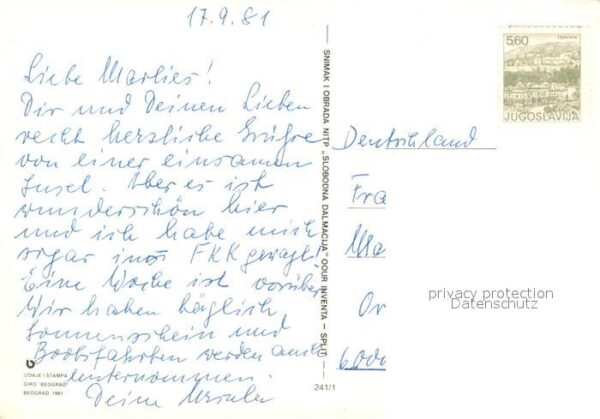 17.9.81
Liebe Marlies!
Dir und Deinen Lieben
recht herzliche Grüße
von einer einsamen
Insel. Aber es ist
wunderschön hier
und ich habe mich
sogar ins FKK gewagt!
Eine Woche ist vorüber
Wir haben täglich
Sonnenschein und
Bootsfahrten werden
unternommen.
Deine Ursula
IZDAJE I ŠTAMPA
GIRO "BEOGRAD"
BEOGRAD, 1981
SNIMAK I OBRADA NITP „SLOBODNA DALMACIJA" OOUR INVENTA — SPLIT
241/1
5.60
JUGOSLAVIJA
Deutschland
Fra
Ma
6000
privacy protection
Datenschutz